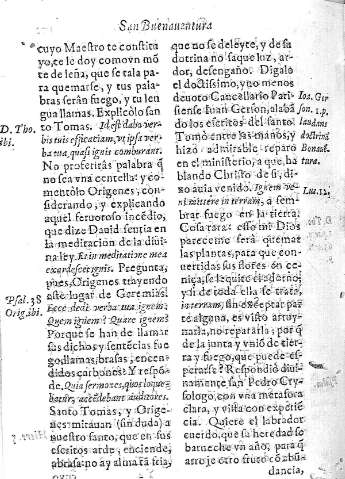 San Buenauentura
cuyo Maestro te constitu
yo, te le doy como vn mõ
te de leña, que se tala pa
ra quemarse, y tus pala
bras serán fuego, y tu len
gua llamas. Explicólo san
to Tomas. Id est dabo ver
D. Tho.
ibi.
bis tuis efficatiam, vt ipsa ver
ba tua, quasi ignis comburant.
No proferirás palabra q̃
no sea vna centella: y co
mentólo Origenes; con
siderando, y explicando
aquel feruoroso incẽdio,
que dize Dauid sentia en
la meditacion de la diui
na ley. Et in meditatione mea
exardescet ignis. Pregunta,
Psal. 38
pues, Origenes trayendo
Orig. ibi.
este lugar de Geremias.
Ecce dedi verba tua ignem:
Quem ignem? Quare ignem?
Porque se han de llamar
sus dichos, y sentẽcias fue
go, llamas, brasas, encen
didos carbones? Y respõ
de, Quia sermones, quos loque
batur, accedebant auditores.
Santo Tomas, y Orige
nes mirauan (sin duda) a
nuestro santo, que en sus
escritos arde, enciende,
abrasa: no ay alma tã fria,
que no se deleyte, y de sa
dotrina no saque luz, ar
dor, desengaño. Digalo
el doctissimo, y no menos
deuoto Cancellario Pari
Ioã. Ger
siense Iuan Gerson, alabã
son. 1. p.
do los escritos del santo
laudans
Tomó entre las manos, y
doctrinã
hizo admirable reparo
Bonauẽ
en el ministerio, a que, ha
tura.
blando Christo de si, di
xo auia venido. Ignem ve
Luc. 12.
ni mittere in terram, a sem
brar fuego en la tierra.
Cosa rara: esso mi Dios
pareceme será quemar
las plantas, para que con
uertidas sus flores en ce
niça, se le quite el adorno;
y si de toda ella se trata,
in terram, sin exceptar par
te alguna, es visto arruy
narla, no repararla; por q̃
de la junta y vniõ de tier
ra y fuego, que puede es
perarse? Respondió diui
namente san Pedro Crys
ologo, con vna metafora
clara, y vista con experiẽ
cia. Quiere el labrador
cuerdo, que su heredad se
barueche vn año, para q̃
arroje otro fruto cõ abun
dancia,